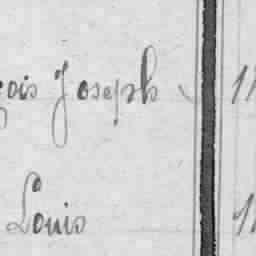 çois Joseph
Louis